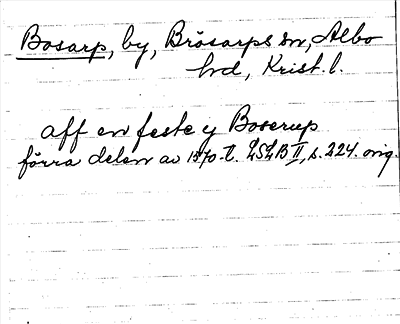 Bosarp, by, Brösarps sn, Albo
hd, Krist. l.
aff en feste y Boserup
förra delen av 1570-t. LSLB II, s. 224. orig.